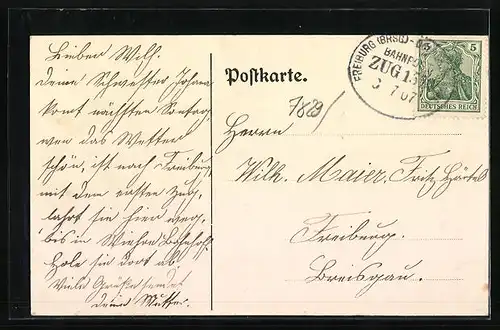 Lieber Wilh.
deine Schwester Johana
komt nächsten Sontag
wen das Wetter
schön ist nach Freiburg
mit dem ersten Zug,
fahrt sie hier weg,
bis in Wiehre Bahnhof.
Hole sie dort ab
Viele Grüße sendet
deine Mutter.
Postkarte.
7829/
FREIBURG (BRSG)-
BAHNPOST
ZUG 15
3 7 07
5
DEUTSCHES REICH
Herrn
Wilh. Maier, Fritz Härtel
Freiburg.
Breisgau.